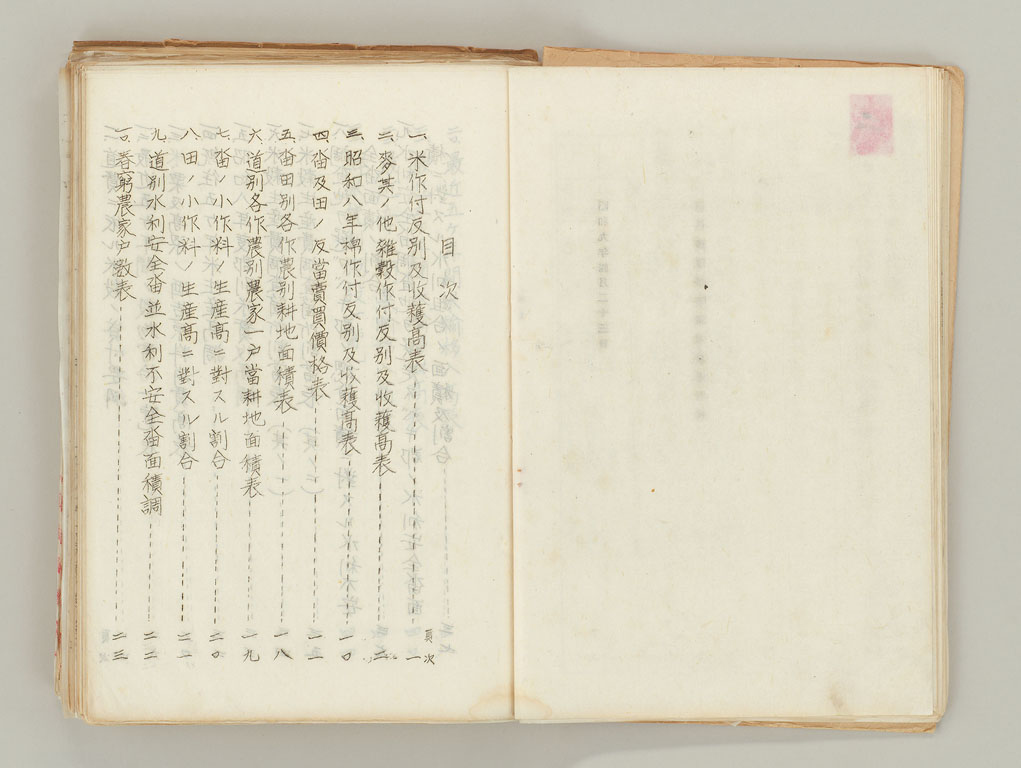 目次
頁次
一、米作付反別及收穫高表 一
二、麥其ノ他雜穀作付反別及收穫高表 二
三、昭和八年棉作付反別及收穫高表 一〇
四、畓及田ノ反當賣買價格表 一一
五、畓田別各作農別耕地面積表 一八
六、道別各作農別農家一戶當耕地面積表 一九
七、畓ノ小作料ノ生産高ニ對スル割合 二〇
八、田ノ小作料ノ生産高ニ對スル割合 二一
九、道別水利安全畓並水利不安全畓面積調 二二
一〇、春窮農家戶數表 二三